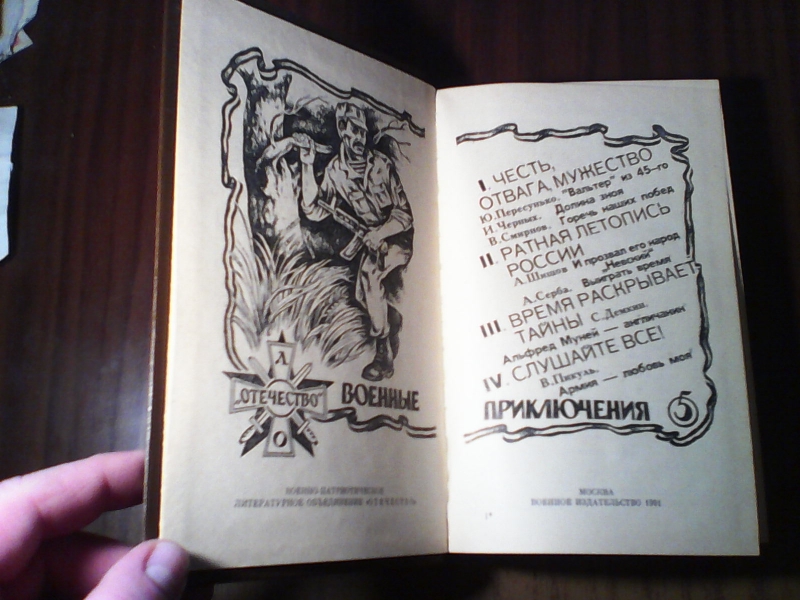 Л
"ОТЕЧЕСТВО"
О
ВОЕННЫЕ
ВОЕННО-ПАТРИОТИЧЕСКОЕ
ЛИТЕРАТУРНОЕ ОБЪЕДИНЕНИЕ «ОТЕЧЕСТВО»
I. ЧЕСТЬ,
ОТВАГА, МУЖЕСТВО
Ю. Пересунько. "Вальтер" из 45-го
И. Черных. Долина зноя
В. Смирнов. Горечь наших побед
II. РАТНАЯ ЛЕТОПИСЬ
РОССИИ
А. Шишов И прозвал его народ
„Невский"
А. Серба. Выиграть время
III. ВРЕМЯ РАСКРЫВАЕТ
ТАЙНЫ С. Демкин.
Альфред Муней — англичанин
IV. СЛУШАЙТЕ ВСЕ!
В. Пикуль.
Армия — любовь моя
ПРИКЛЮЧЕНИЯ 5
МОСКВА
ВОЕННОЕ ИЗДАТЕЛЬСТВО 1991